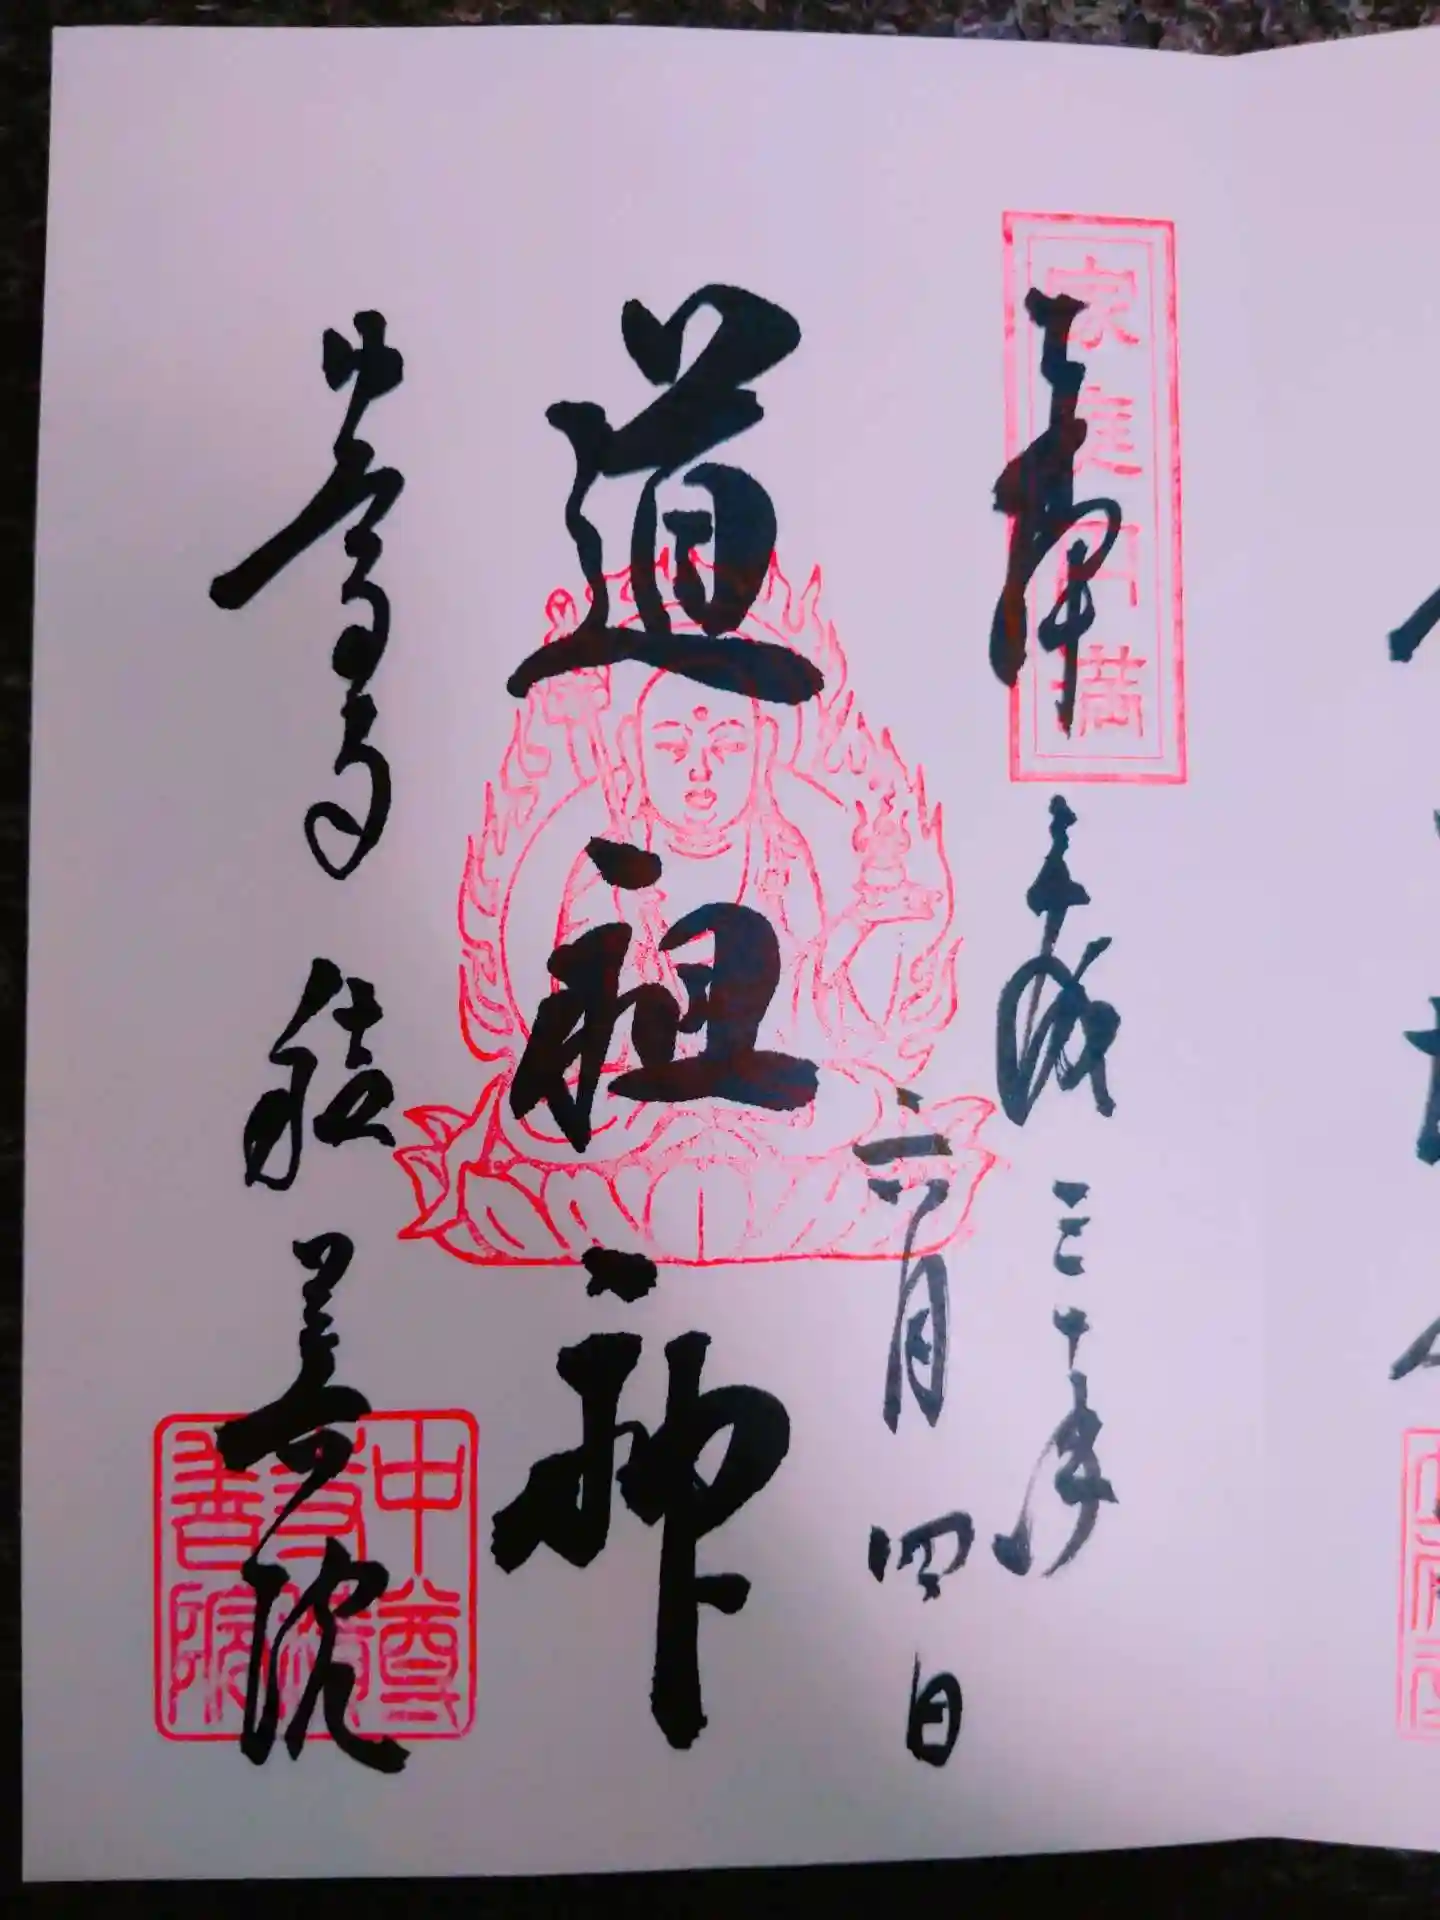 奉拝
家庭円満
平成三十年
二月四日
道祖神
中尊寺 積善院
中尊
寺積
善院